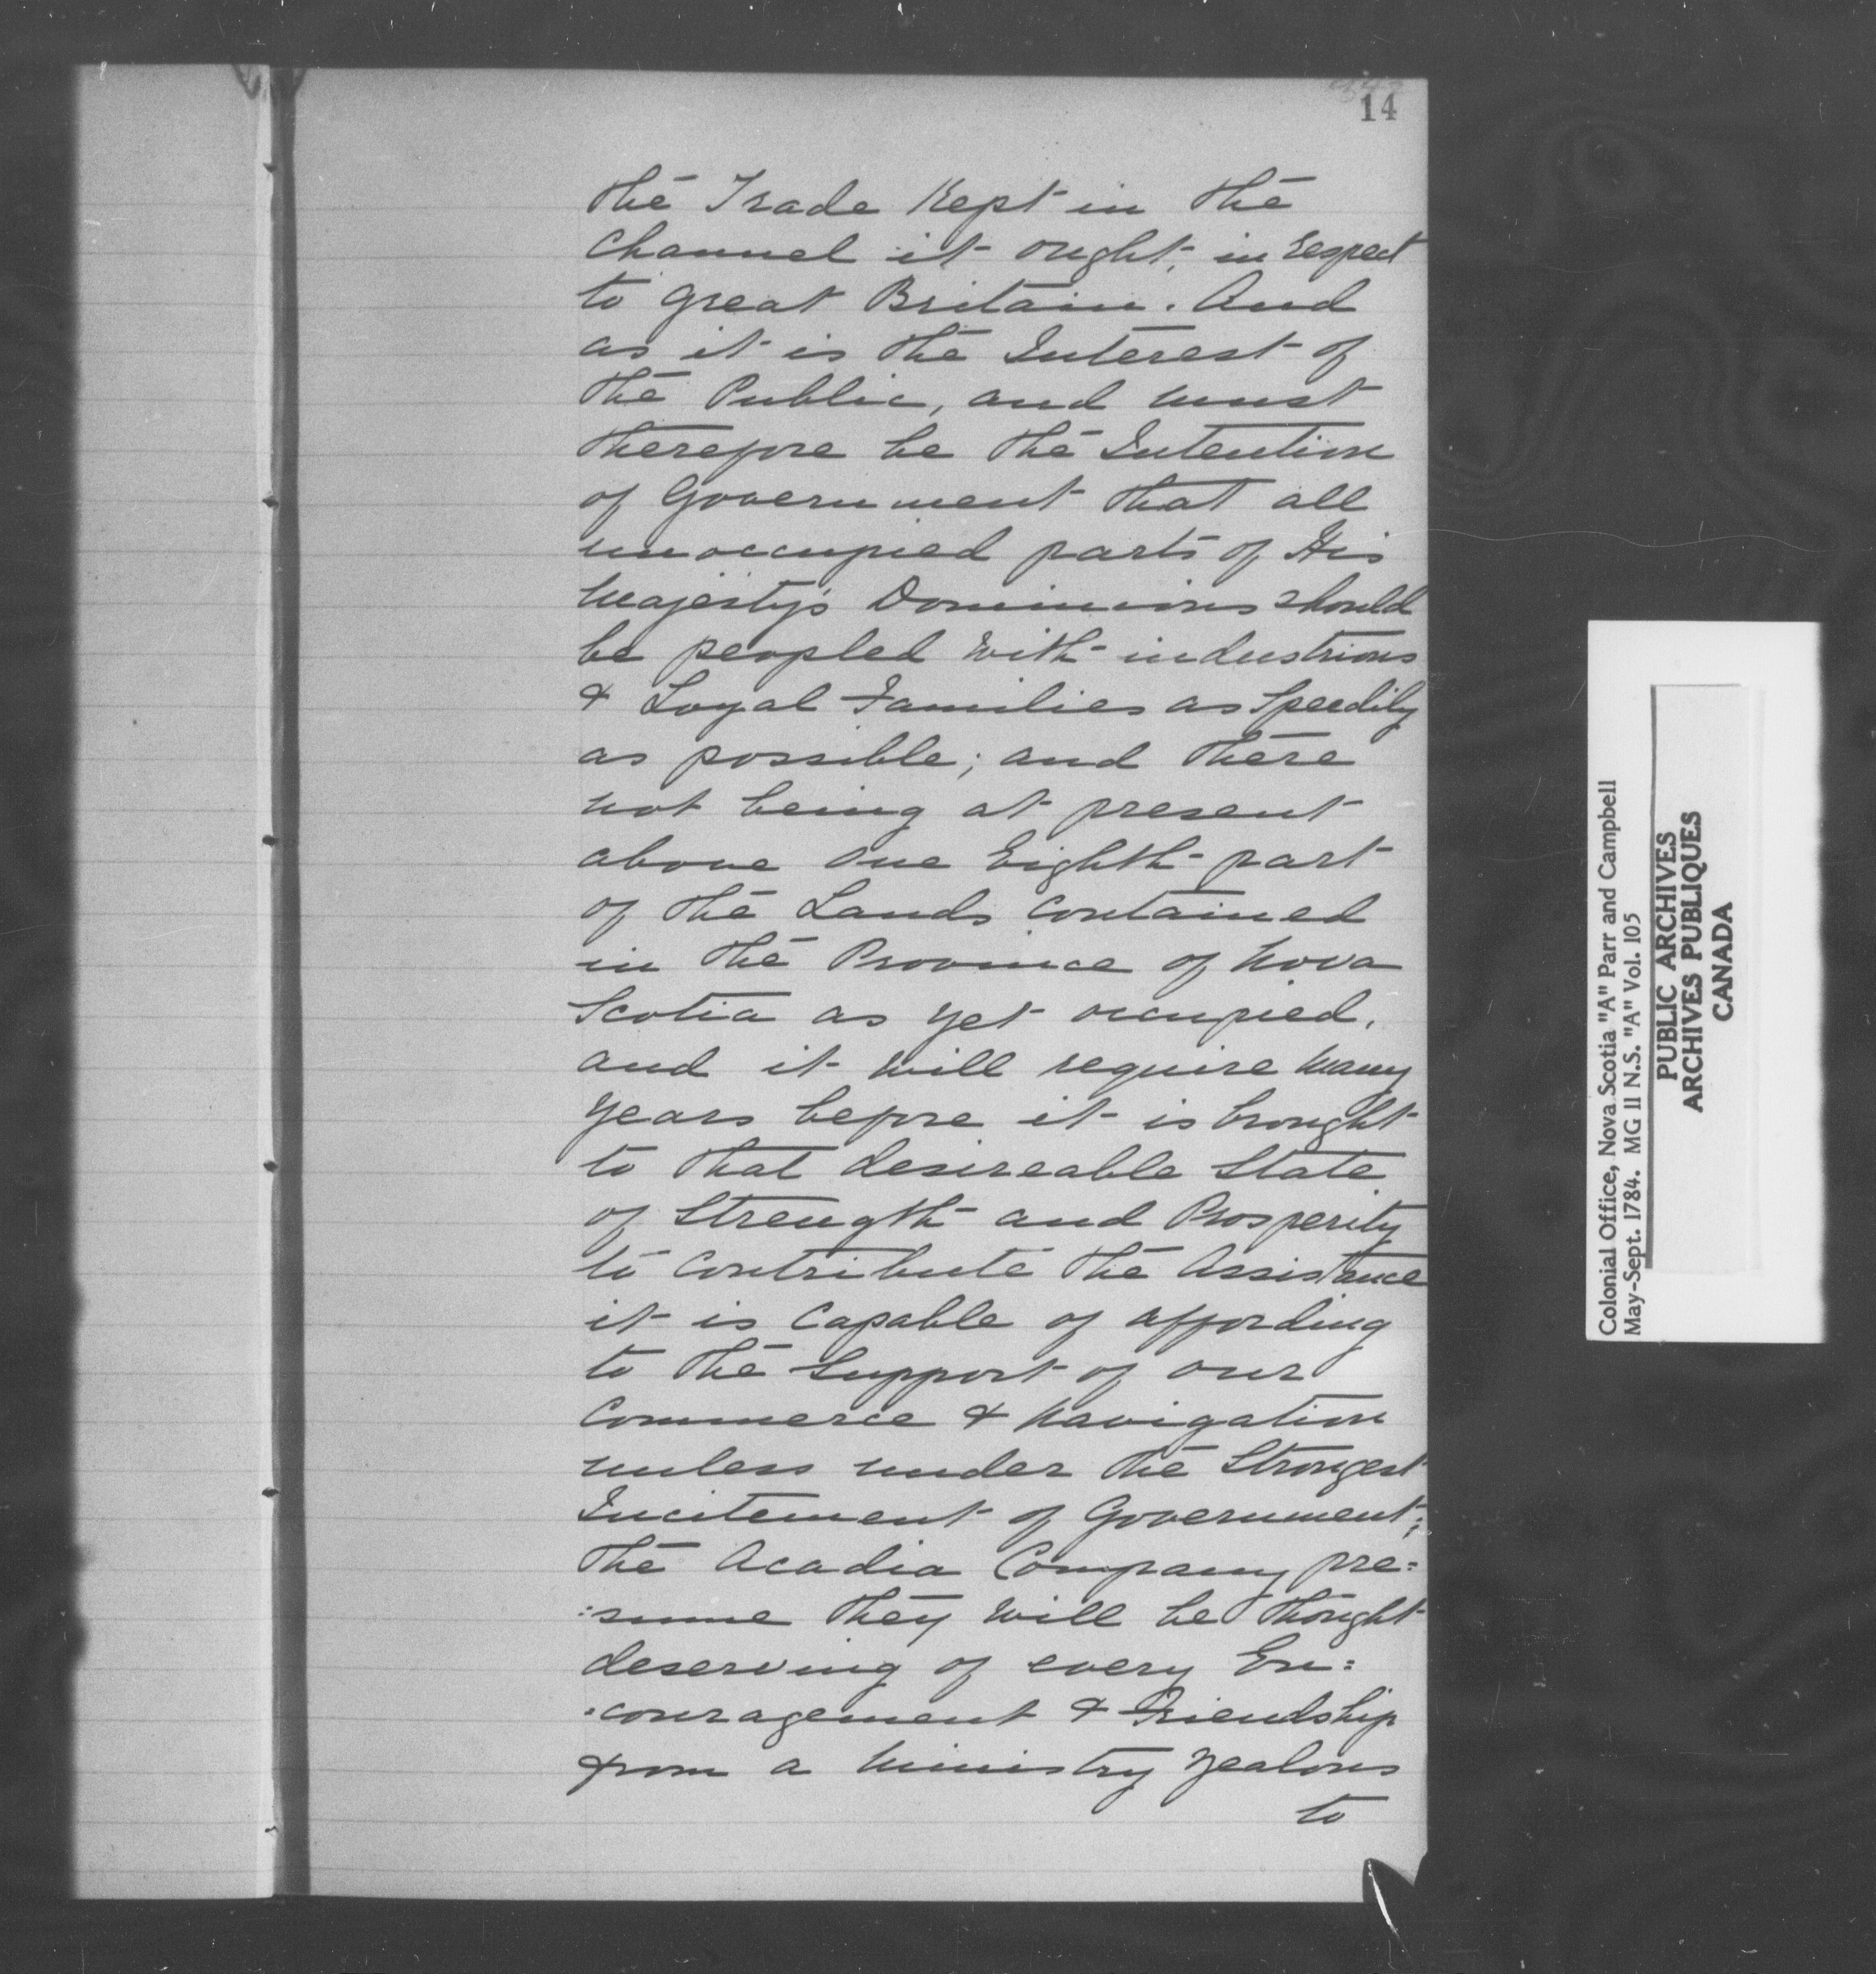 14
the Trade Kept in the
Channel it ought, in respect
to Great Britain. And
as it is the Interest of
the Public, and must
therefore be the Intention
of Government that all
unoccupied parts of His
Majesty's Dominions should
be peopled with industrious
& Loyal Families as Speedily
as possible; and there
not being at present
above One Eighth part
of the Lands contained
in the Province of Nova
Scotia as yet occupied,
and it will require many
years before it is brought
to that desireable State
of Strength and Prosperity
to Contribute the Assistance
it is Capable of affording
to the Support of our
Commerce & Navigation
unless under the Strongest
Incitement of Government;
the Acadia Company pre=
:sume they will be thought
deserving of every En:
:couragement & Friendship
from a Ministry Zealous
to
Colonial Office, Nova Scotia "A" Parr and Campbell
May-Sept. 1784. MG 11 N.S. "A" Vol. 105
PUBLIC ARCHIVES
ARCHIVES PUBLIQUES
CANADA